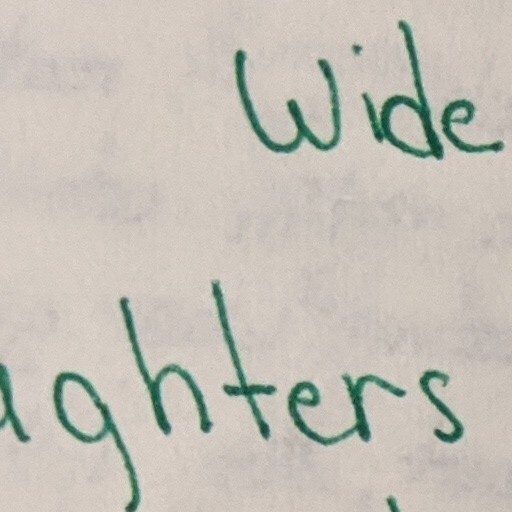 Wide
ughters